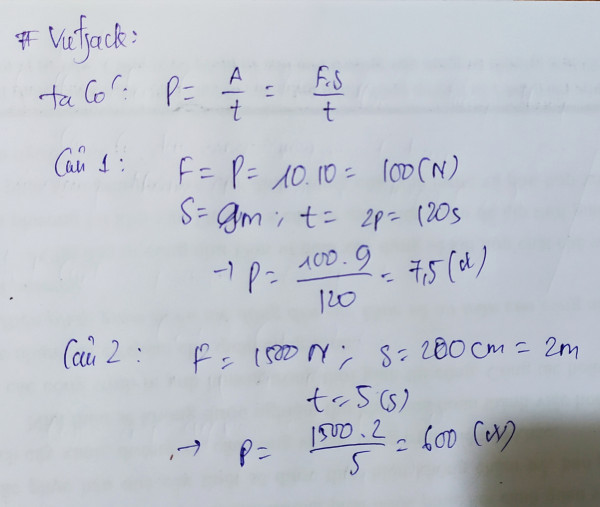 # Vuefjack:
ta Có: P = A/t = F.S/t
Câu 1: F = P = 10.10 = 100(N)
S = 9m; t = 2p = 120s
→ P = 100.9/120 = 7,5 (W)
Câu 2: F = 1500 N; S = 200cm = 2m
t = 5(s)
→ P = 1500.2/5 = 600 (W)